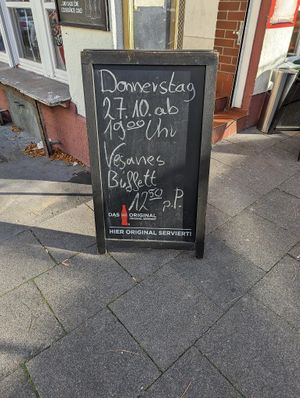 Donnerstag
27.10. ab
19⁰⁰ Uhr
Veganes
Büffett
12⁵⁰ p.P.
DAS ORIGINAL
HIER ORIGINAL SERVIERT!